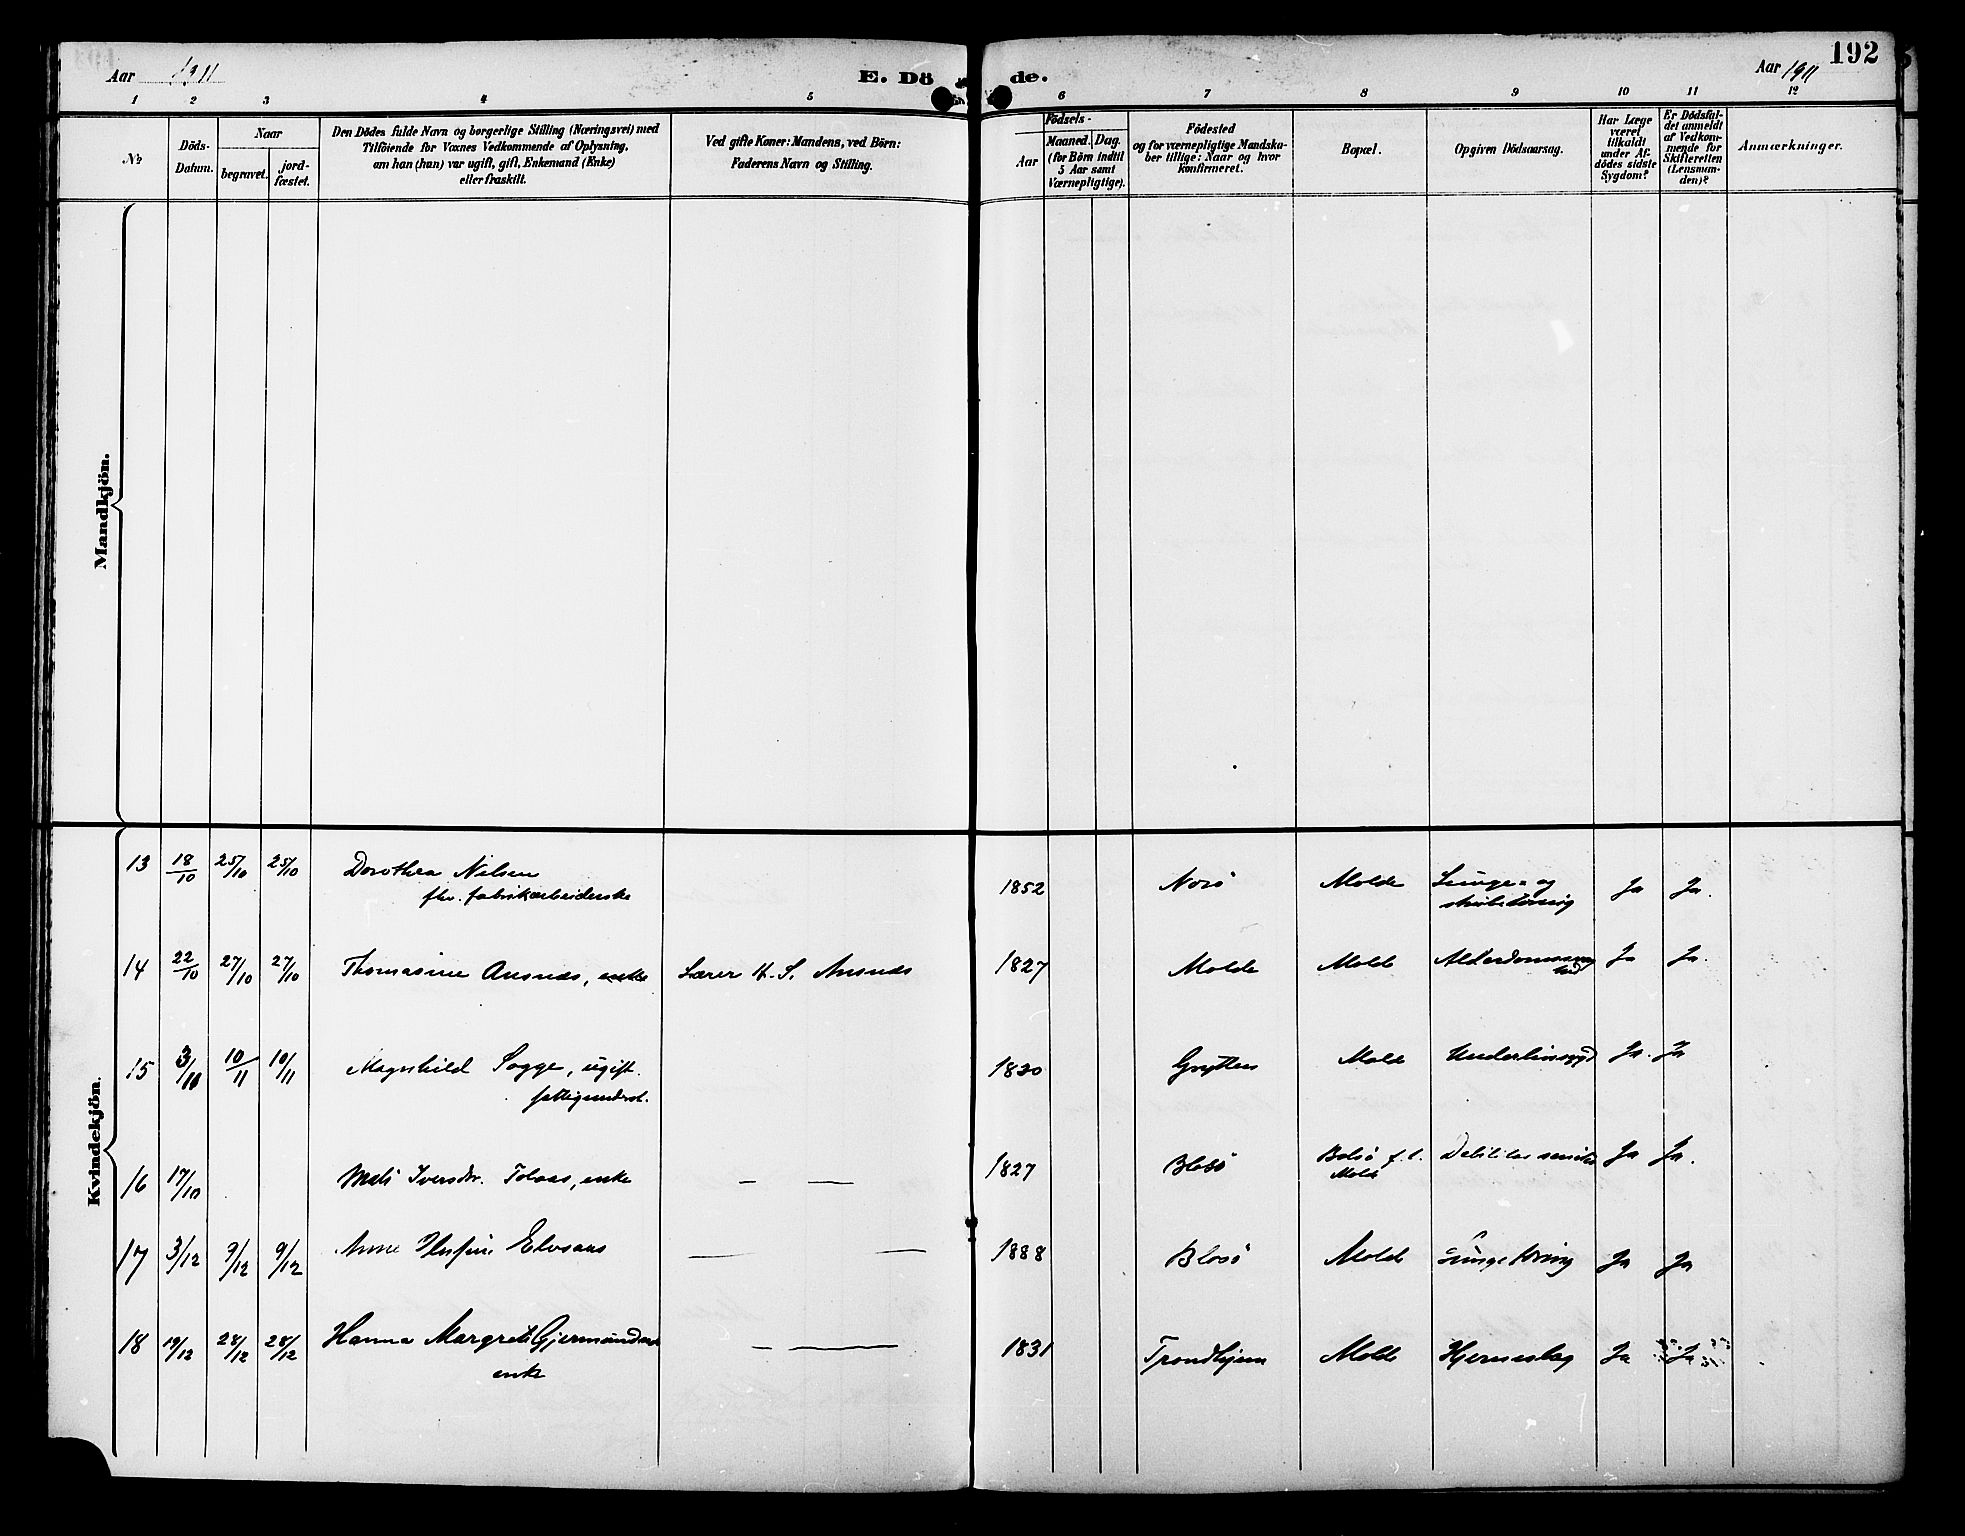 Aar 1911
E. Döde.
Aar 1911
192
1 2 3 4 5 6 7 8 9 10 11 12
No
Döds-
Datum.
Naar
begravet.
jord-
fæstet.
Den Dödes fulde Navn og borgerlige Stilling (Næringsvei) med
Tilföiende for Voxnes Vedkommende af Oplysning,
om han (hun) var ugift, gift, Enkemand (Enke)
eller fraskilt.
Ved gifte Koner: Mandens, ved Börn:
Faderens Navn og Stilling.
Födsels-
Aar
Maaned. Dag.
(for Börn indtil
5 Aar samt
Værnepligtige).
Födested
og for værnepligtige Mandska-
ber tillige: Naar og hvor
konfirmeret.
Bopæl.
Opgiven Dödsaarsag.
Har Læge
været
tilkaldt
under Af-
dödes sidste
Sygdom?
Er Dödsfal-
det anmeldt
af Vedkom-
mende for
Skifteretten
(Lensman-
den)?
Anmærkninger.
Mandkjön.
Kvindekjön.
13 18/10 25/10 25/10 Dorothea Nilsen 1852 Molde Lunge- og Ja Ja.
fhv. fabrikarbeiderske
14 22/10 27/10 27/10 Thomasine Ausnæs, enke Lærer H. S. Ausnæs 1827 Molde Molde Ja Ja.
15 3/11 10/11 10/11 Magnhild Sogge, ugift. 1830 Grytten Molde Underlivssygd Ja. Ja
fattigunderst.
16 17/10 Iversdr. Tolaas, enke — — 1827 Bolsö Bolsö f. l. Debilitas senilis Ja Ja.
Molde
17 3/12 9/12 9/12 Anne — — 1888 Bolsö Molde Ja Ja
18 19/12 28/12 28/12 Hanna Margrete — — 1831 Trondhjem Molde Hjerneslag Ja Ja
enke